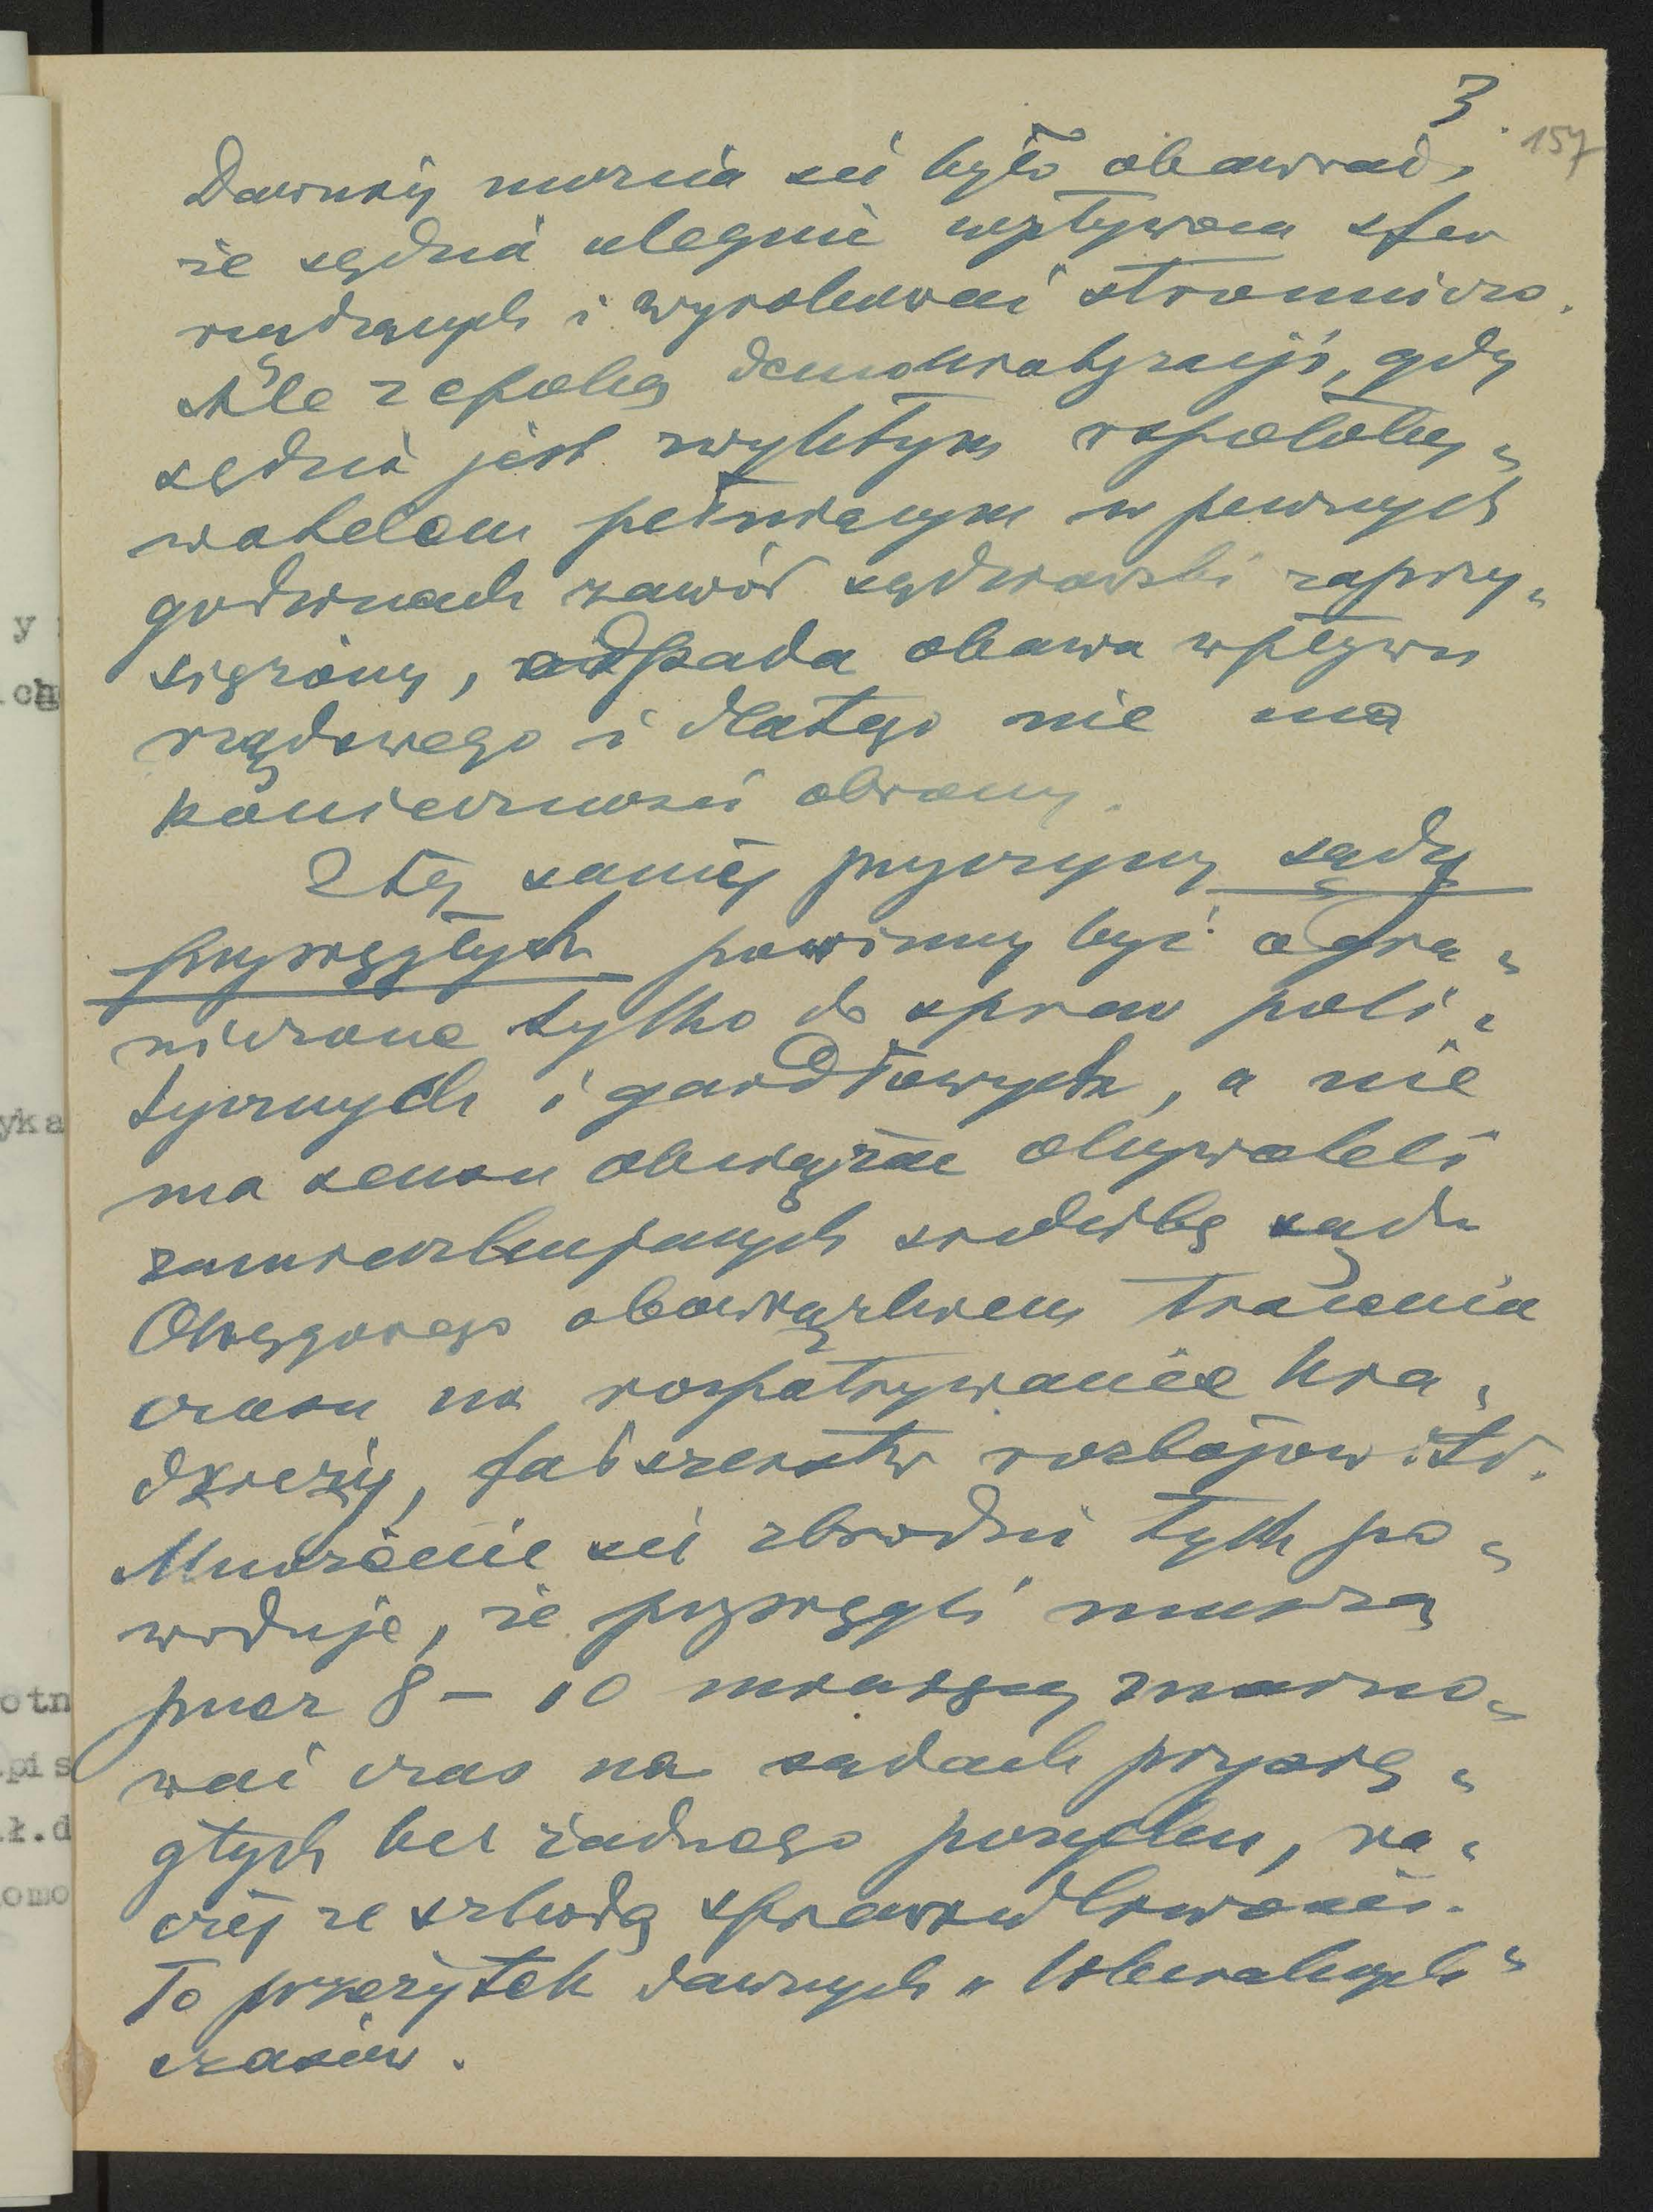 3.
157
Dawniej można się było obawiać,
że sędzia ulegnie wpływom sfer
rządzących i wyrokować stronniczo.
Ale z epoką demokratyzacji, gdy
sędzia jest zwykłym współoby„
watelem pełniącym w pewnych
godzinach zawód sędziowski zaprzy„
siężony, odpada obawa wpływu
rządowego i dlatego nie ma
konieczności obrony.
Z tej samej przyczyny sądy
przysięgłych powinny być ogra„
niczone tylko do spraw poli„
tycznych i gardłowych, a nie
ma sensu obciążać obywateli
zamieszkujących siedzibę sądu
Okręgowego obowiązkiem tracenia
czasu na rozpatrywanie kra„
dzieży, fałszerstw rozbojów itd.
Mnożenie się zbrodni tych po„
woduje, że przysięgli muszą
przez 8 – 10 miesięcy marno„
wać czas na sądach przysię„
głych bez żadnego pożytku, ra„
czej ze szkodą sprawiedliwości.
To przeżytek dawnych „liberalnych"
czasów.
y
ch
yka
otn
pis
ł.d
omo